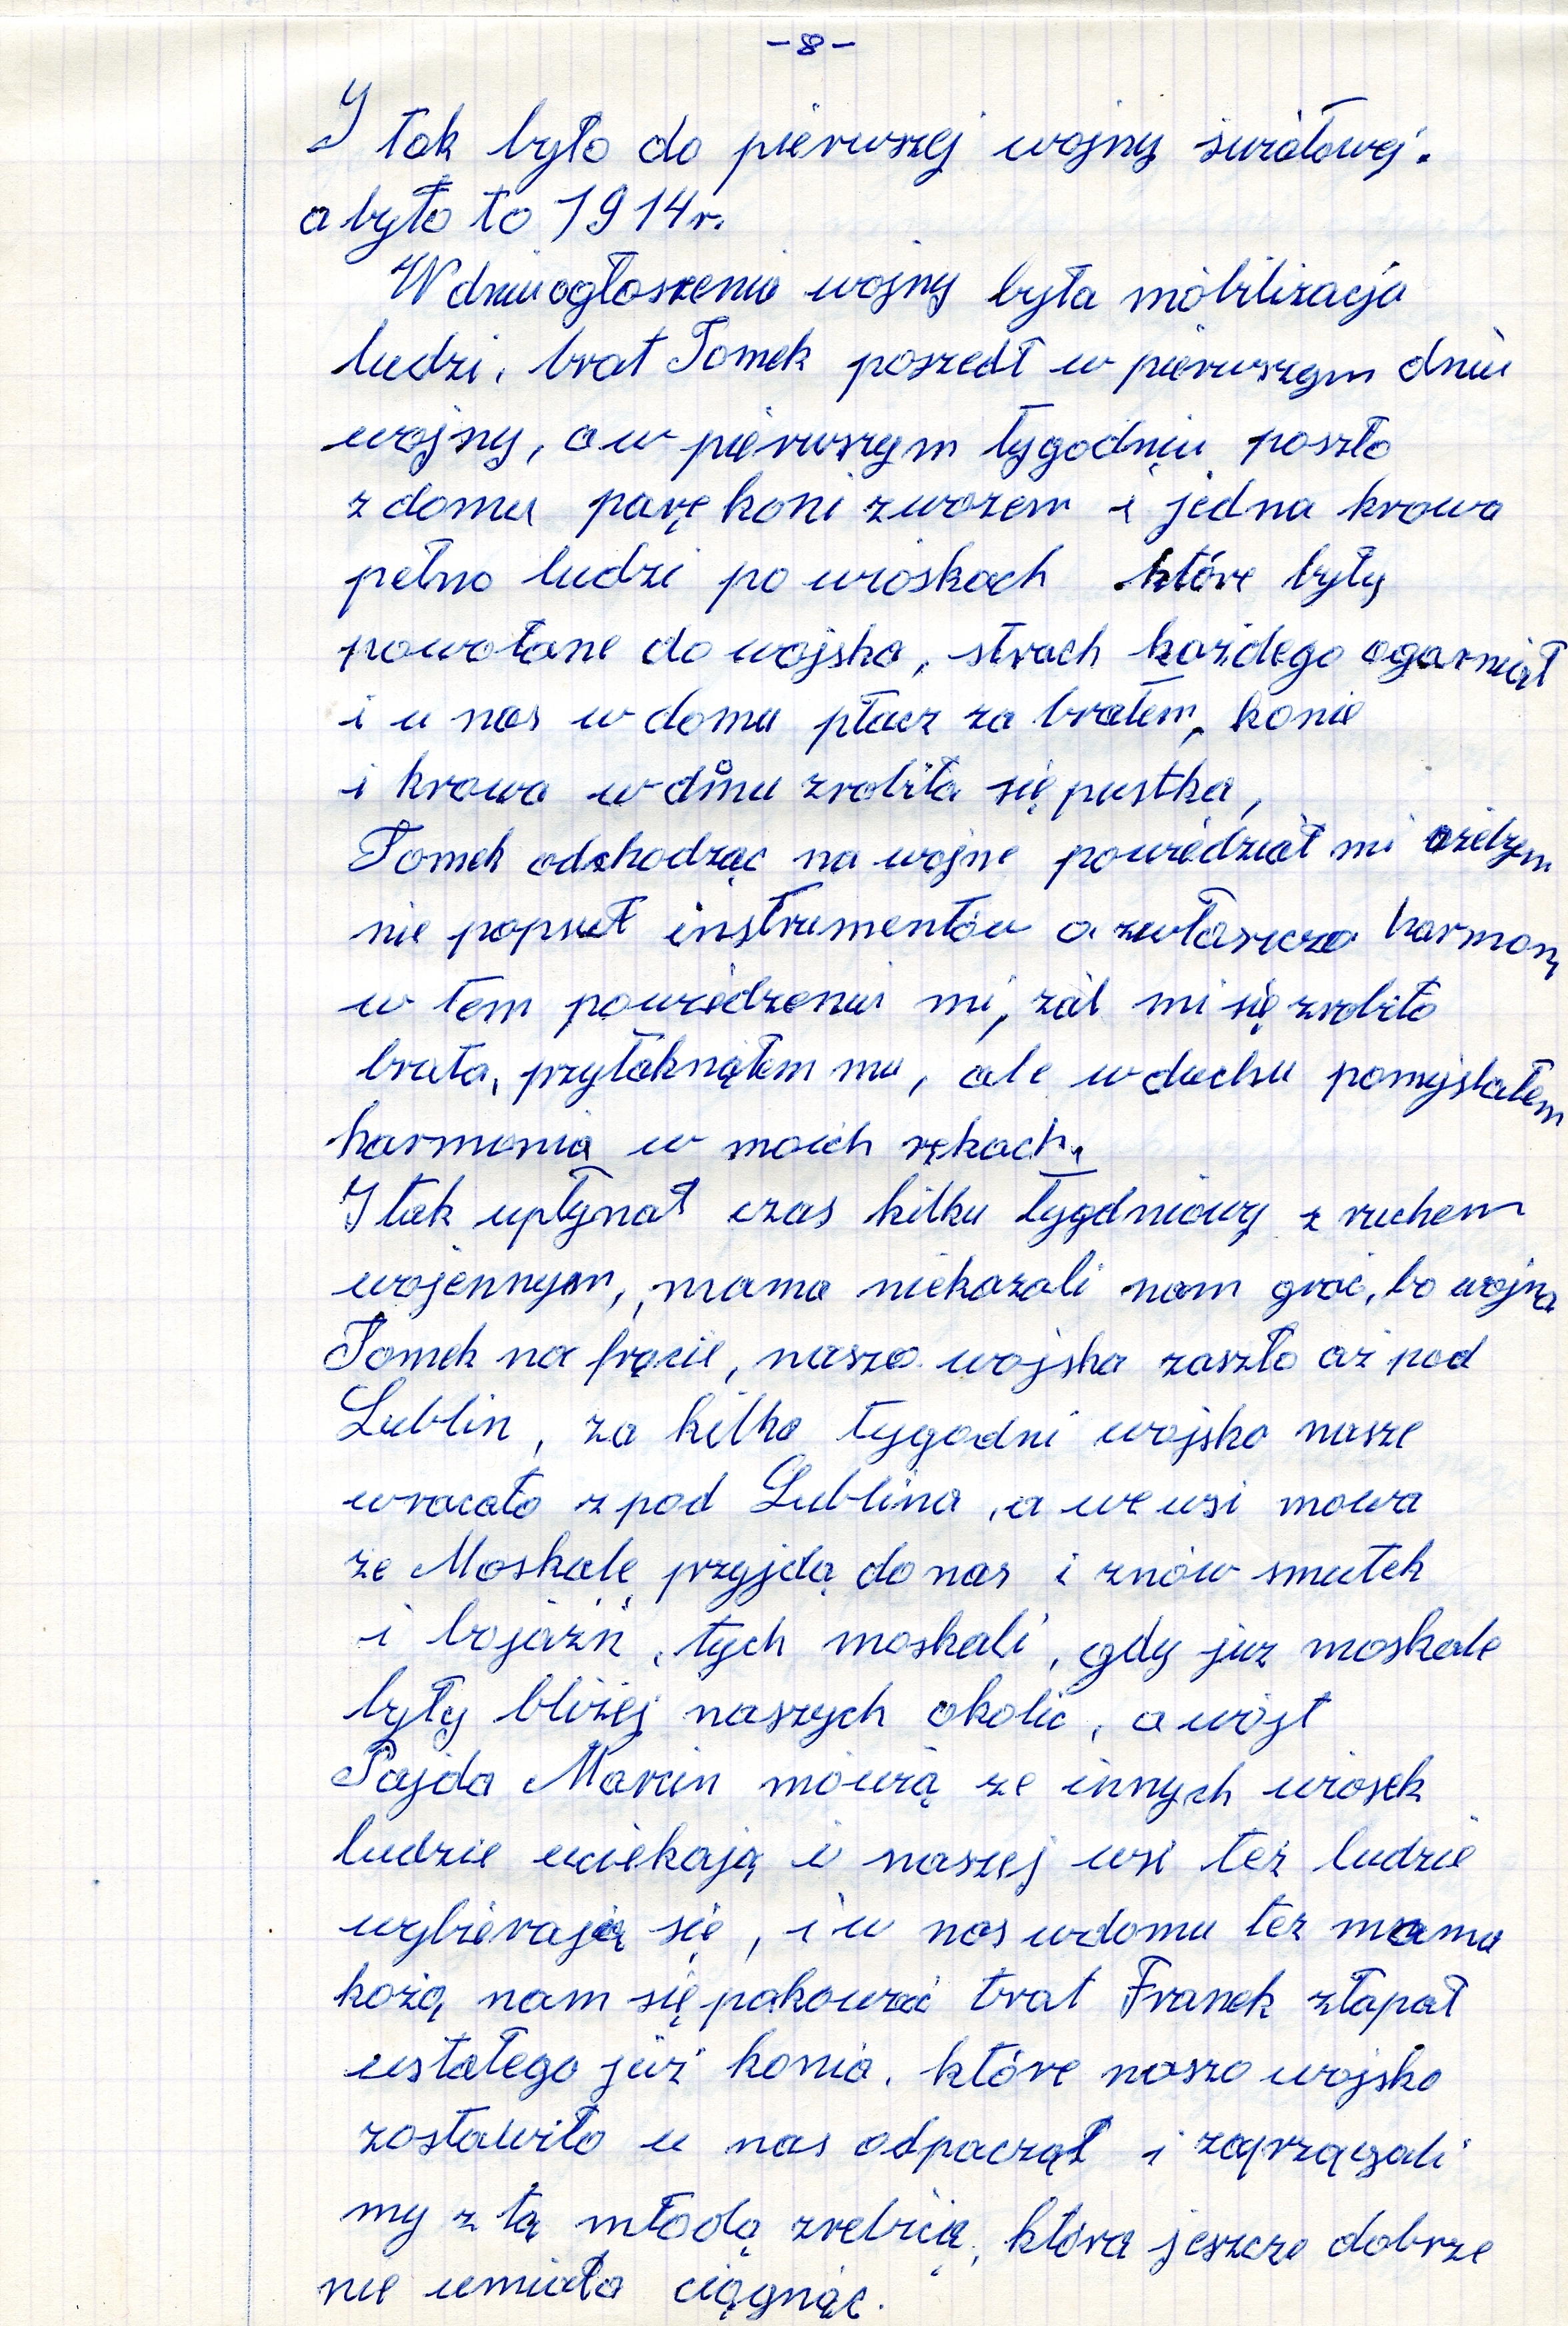 -8-
I tak było do pierwszej wojny światowej.
a było to 1914r.
W dniu ogłoszenia wojny była mobilizacja
ludzi, brat Tomek poszedł w pierwszym dniu
wojny, a w pierwszym tygodniu poszło
z domu parę koni z wozem i jedna krowa
pełno ludzi po wioskach które były
powołane do wojska, strach każdego ogarniał
i u nas w domu płacz za bratem, konie
i krowa w domu zrobiła się pustka,
Tomek odchodząc na wojne powiedział mi ażebym
nie popsuł instrumentów a zwłaszcza harmonį
w tem powiedzeniu mi, żal mi się zrobiło
brata, przytaknąłem mu, ale w duchu pomyślałem
harmonia w moich rękach.
I tak upłynął czas kilku tygdniowy z ruchem
wojennym, mama niekazali nam grać, bo wojna
Tomek na frącie, nasze wojska zaszło aż pod
Lublin, za kilka tygodni wojsko nasze
wracało z pod Lublina, a we wsi mowa
że Moskale przyjdą do nas i znów smutek
i bojaźń, tych moskali, gdy już moskale
były bliżej naszych okolic, a wójt
Pajda Marcin mówią ze innych wiosek
ludzie uciekają i naszej wsi też ludzie
wybierają się, i u nas wdomu też mama
każą nam się pakować brat Franek złapał
ustałego już konia, które naszo wojsko
zostawiło u nas odpaczął i zaprzągali
my z tą młodą zrebicą, która jeszcze dobrze
nie umiała ciągnąć.